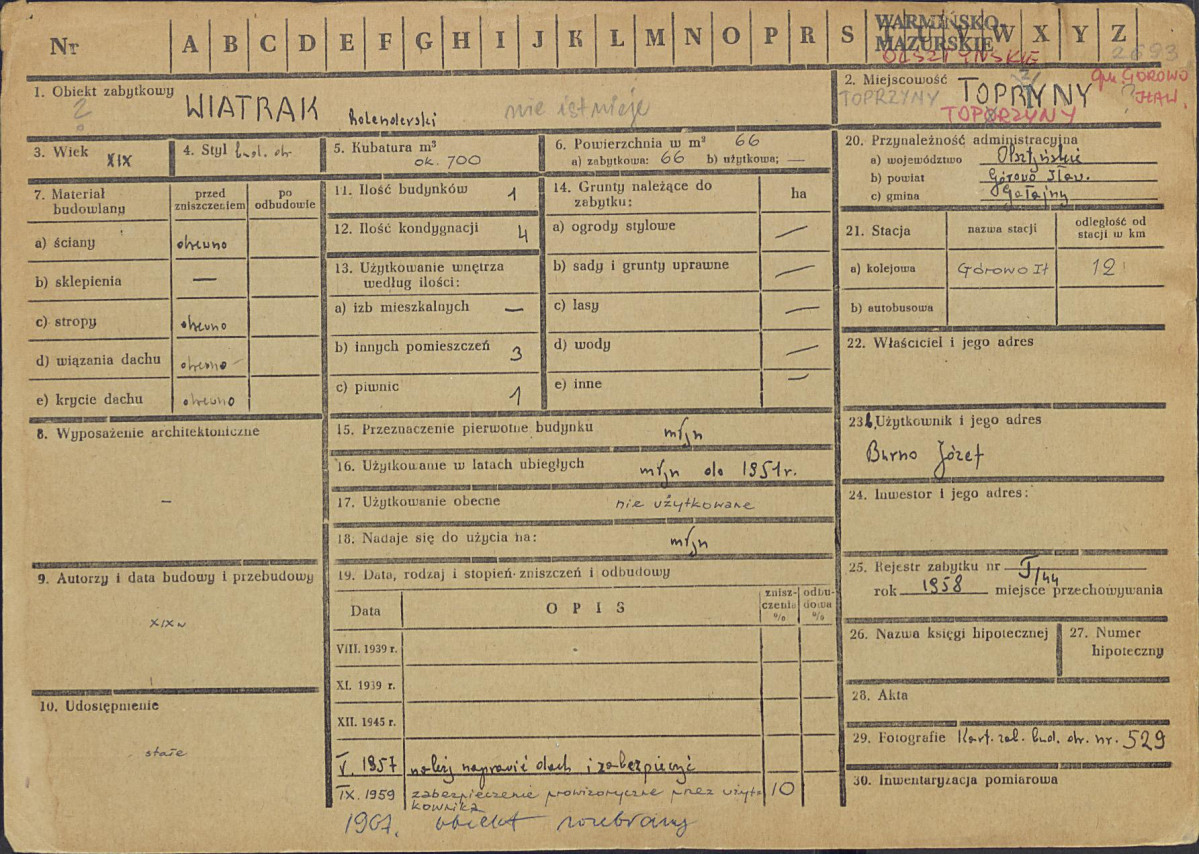 Nr A B C D E F G H I J K L M N O P R S T U V W X Y Z
WARMIŃSKO-
MAZURSKIE
OLSZTYŃSKIE
2693
1. Obiekt zabytkowy
?
WIATRAK holenderski nie istnieje
2. Miejscowość
TOPRZYNY TOPRZYNY
TOPORZYNY
gm. GÓROWO
IŁAW.
3. Wiek XIX
4. Styl bud. dr.
5. Kubatura m³
ok. 700
6. Powierzchnia w m² 66
a) zabytkowa: 66 b) użytkowa; —
7. Materiał
budowlany
przed
zniszczeniem
po
odbudowie
a) ściany drewno
b) sklepienia —
c) stropy drewno
d) wiązania dachu drewno
e) krycie dachu drewno
8. Wyposażenie architektoniczne
—
9. Autorzy i data budowy i przebudowy
XIX w
10. Udostępnienie
stałe
11. Ilość budynków 1
12. Ilość kondygnacji 4
13. Użytkowanie wnętrza
według ilości:
a) izb mieszkalnych —
b) innych pomieszczeń 3
c) piwnic 1
14. Grunty należące do
zabytku:
ha
a) ogrody stylowe —
b) sady i grunty uprawne —
c) lasy —
d) wody —
e) inne —
15. Przeznaczenie pierwotne budynku młyn
16. Użytkowanie w latach ubiegłych młyn do 1951 r.
17. Użytkowanie obecne nie użytkowane
18. Nadaje się do użycia na: młyn
19. Data, rodzaj i stopień zniszczeń i odbudowy
Data OPIS
znisz-
czenia
%
odbu-
dowa
%
VIII. 1939 r.
XI. 1939 r.
XII. 1945 r.
V. 1957 należy naprawić dach i zabezpieczyć
IX. 1959 zabezpieczenie prowizoryczne przez użyt- 10
kownika
1967. obiekt rozebrany
20. Przynależność administracyjna
a) województwo Olsztyńskie
b) powiat Górowo Iław.
c) gmina Gałajny
21. Stacja
nazwa stacji
odległość od
stacji w km
a) kolejowa Górowo Ił 12
b) autobusowa
22. Właściciel i jego adres
23. Użytkownik i jego adres
Burno Józef
24. Inwestor i jego adres:
25. Rejestr zabytku nr I/44
rok 1958 miejsce przechowywania
26. Nazwa księgi hipotecznej
27. Numer
hipoteczny
28. Akta
29. Fotografie Kart. zab. bud. dr. nr. 529
30. Inwentaryzacja pomiarowa